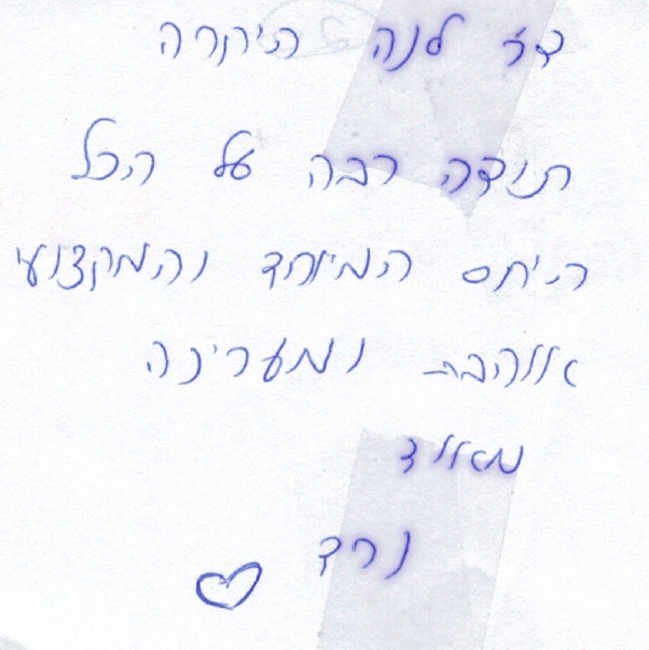 לנה היקרה
תודה רבה על הכל
היחס המיוחד והמקצועי
אוהבת ומעריכה
מאוד